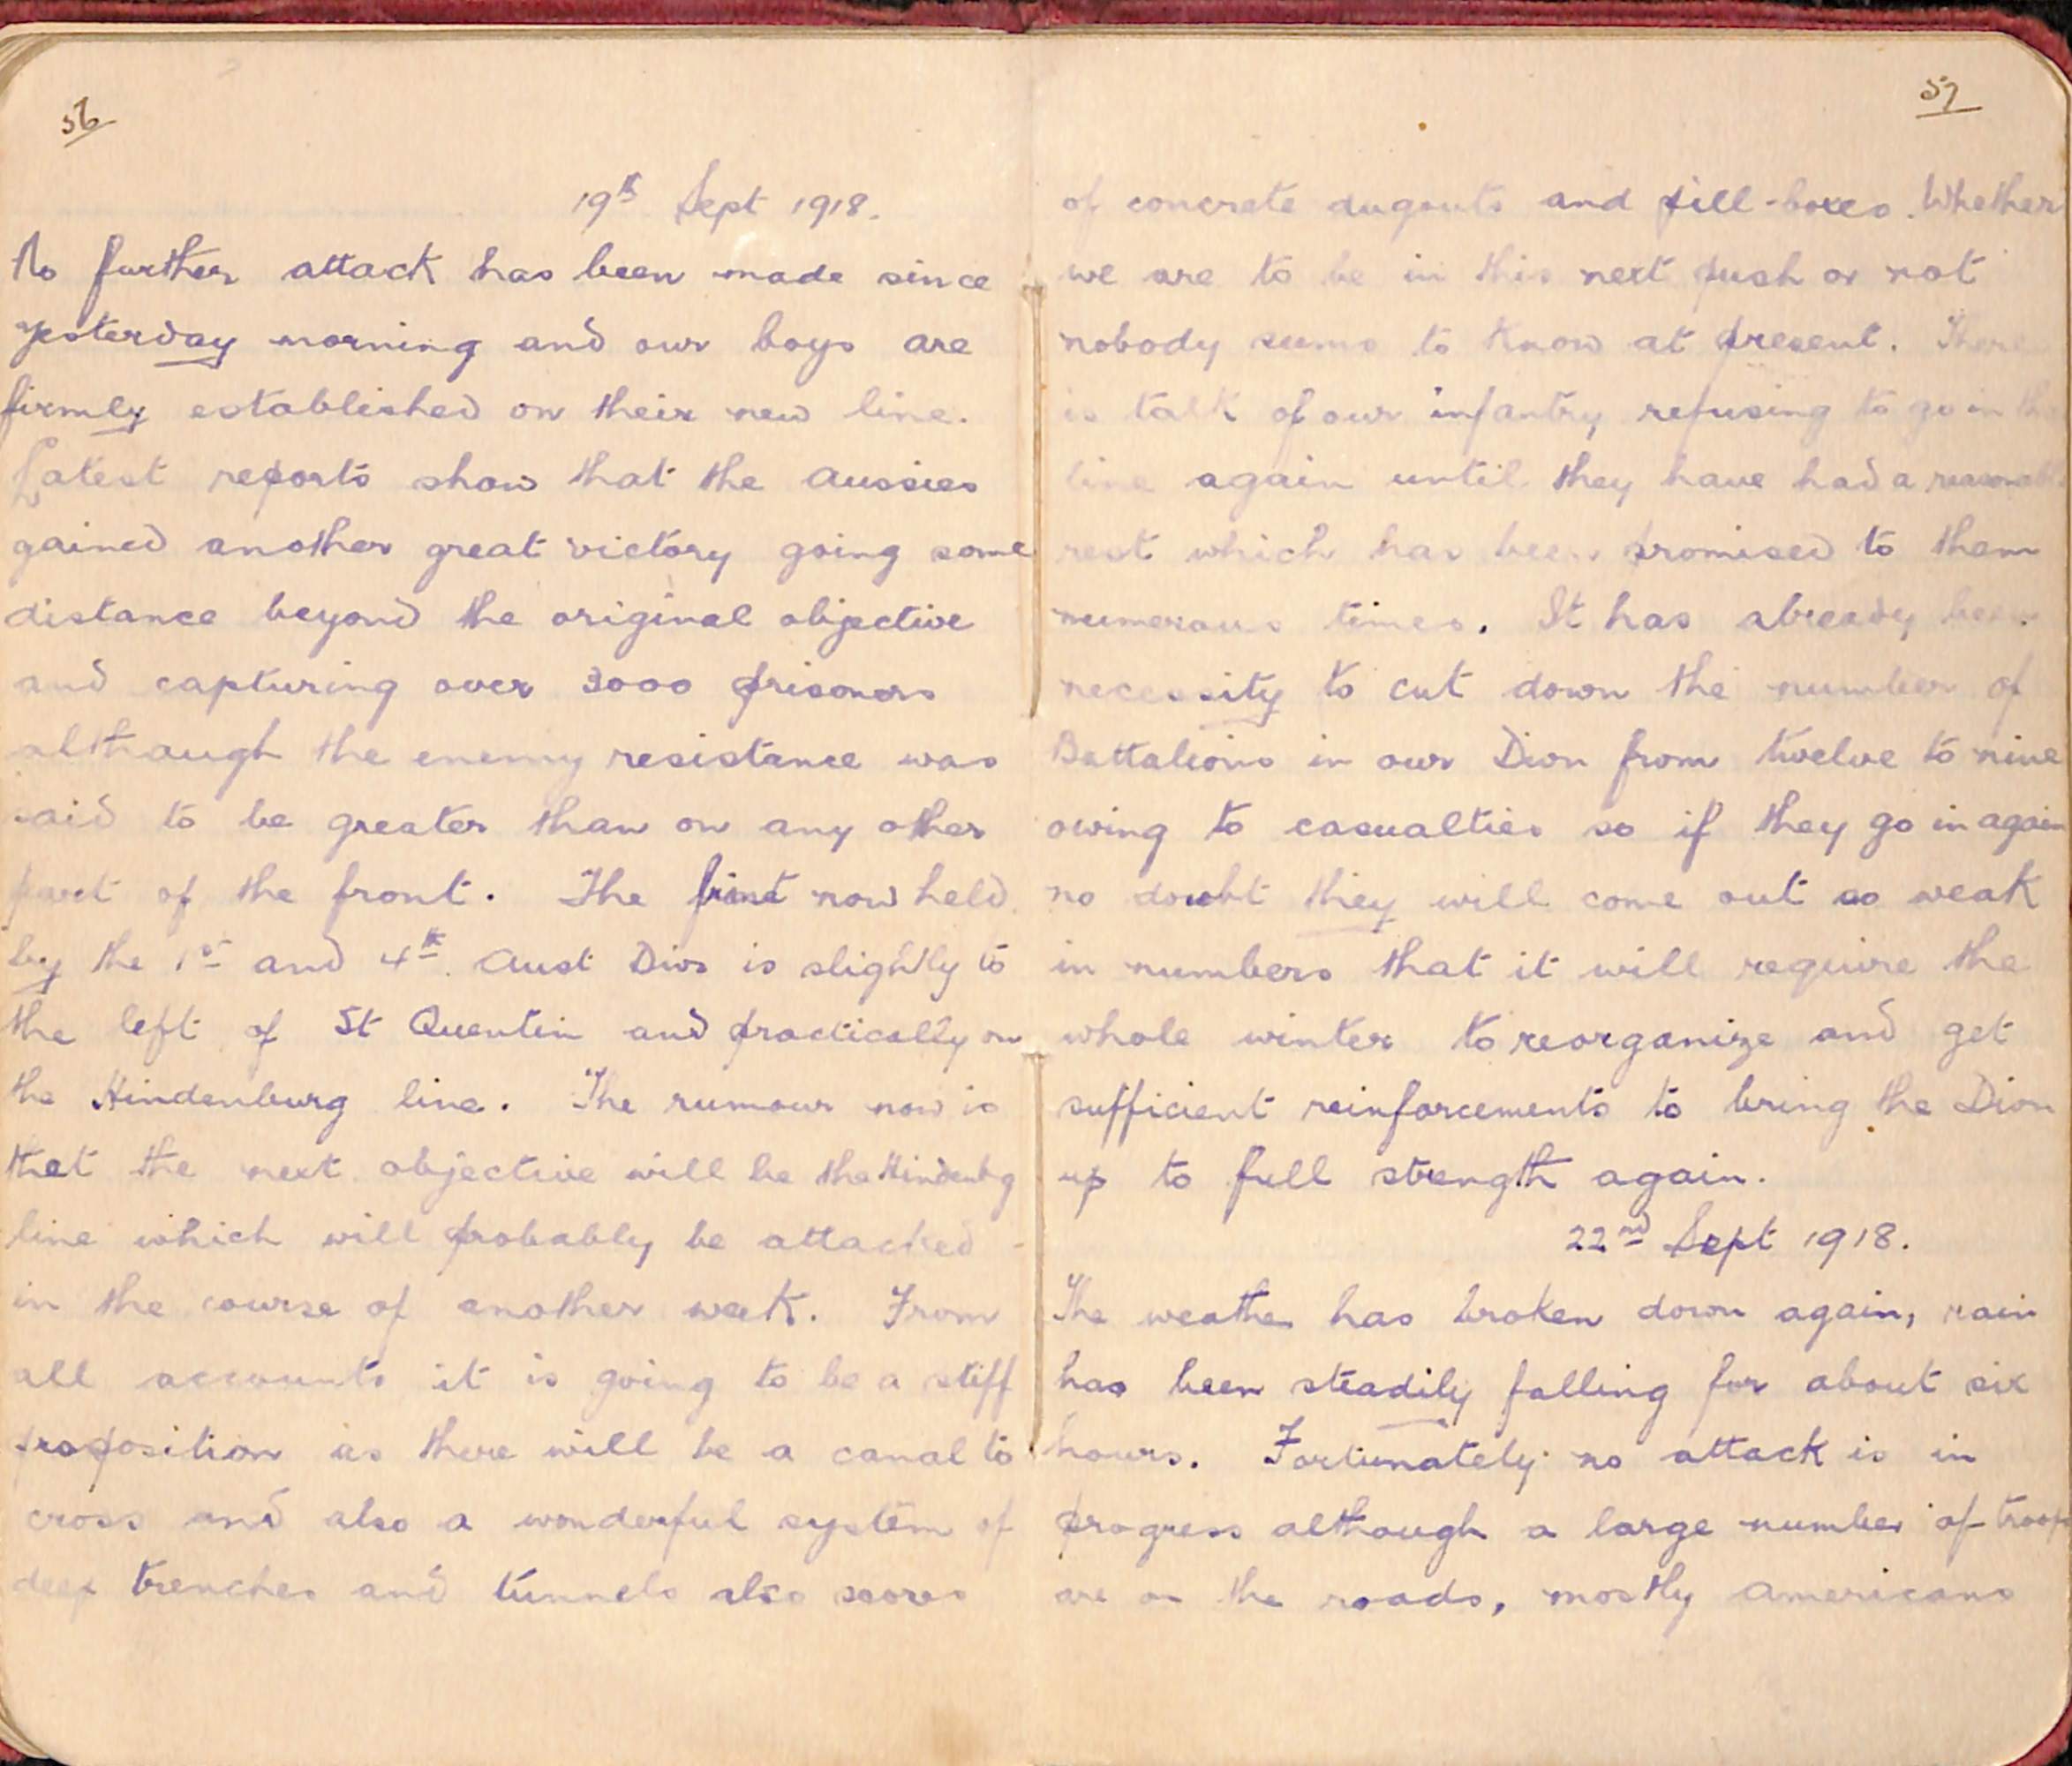 56
19th Sept 1918.
No further attack has been made since
yesterday morning and our boys are
firmly established on their new line.
Latest reports show that the Aussies
gained another great victory going some
distance beyond the original objective
and capturing over 3000 prisoners
although the enemy resistance was
said to be greater than on any other
part of the front. The front now held
by the 1st and 4th Aust Divs is slightly to
the left of St Quentin and practically on
the Hindenburg line. The rumour now is
that the next objective will be the Hindenbg
line which will probably be attacked
in the course of another week. From
all accounts it is going to be a stiff
proposition as there will be a canal to
cross and also a wonderful system of
deep trenches and tunnels also scores
57
of concrete dugouts and pill-boxes. Whether
we are to be in this next push or not
nobody seems to know at present. There
is talk of our infantry refusing to go in the
line again until they have had a reasonable
rest which has been promised to them
numerous times. It has already been
necessity to cut down the number of
Battalions in our Dion from twelve to nine
owing to casualties so if they go in again
no doubt they will come out so weak
in numbers that it will require the
whole winter to reorganize and get
sufficient reinforcements to bring the Dion
up to full strength again.
22nd Sept 1918.
The weather has broken down again, rain
has been steadily falling for about six
hours. Fortunately no attack is in
progress although a large number of troops
are on the roads, mostly Americans